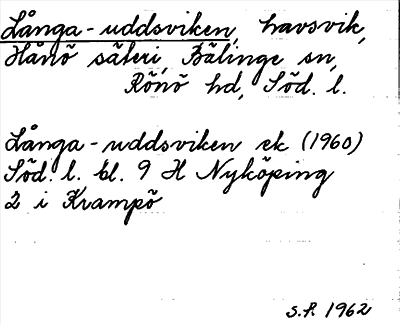 Långa-uddsviken, havsvik,
Hånö säteri, Bälinge sn,
Rönö hd, Söd. l.
Långa-uddsviken ek (1960)
Söd. l. bl. 9 H Nyköping
2 i Krampö
S.R. 1962